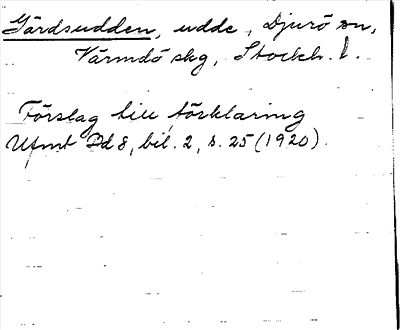 Gärdsudden, udde, Djurö sn,
Värmdö skg, Stockh. l.
Förslag till förklaring
Ufmt Dd 8, bil. 2, s. 25 (1920).